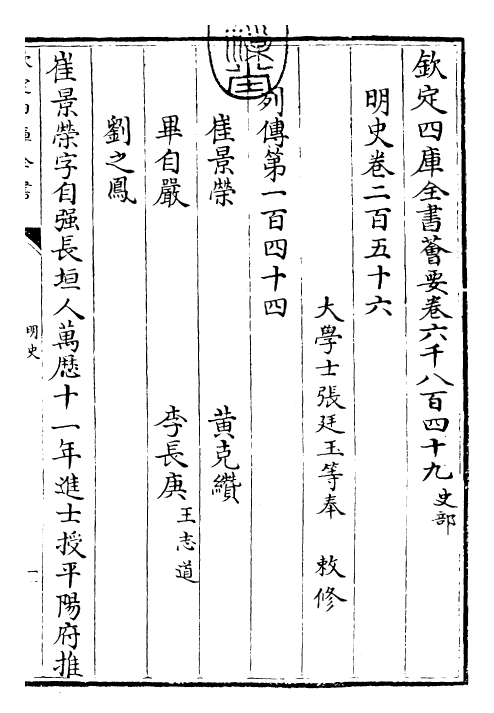 欽定四庫全書薈要卷六千八百四十九史部
明史卷二百五十六
大學士張廷玉等奉 敕修
列傳第一百四十四
崔景榮 黄克纘
畢自嚴 李長庚王志道
劉之鳳
崔景榮字自强長垣人萬厯十一年進士授平陽府推
明史
一